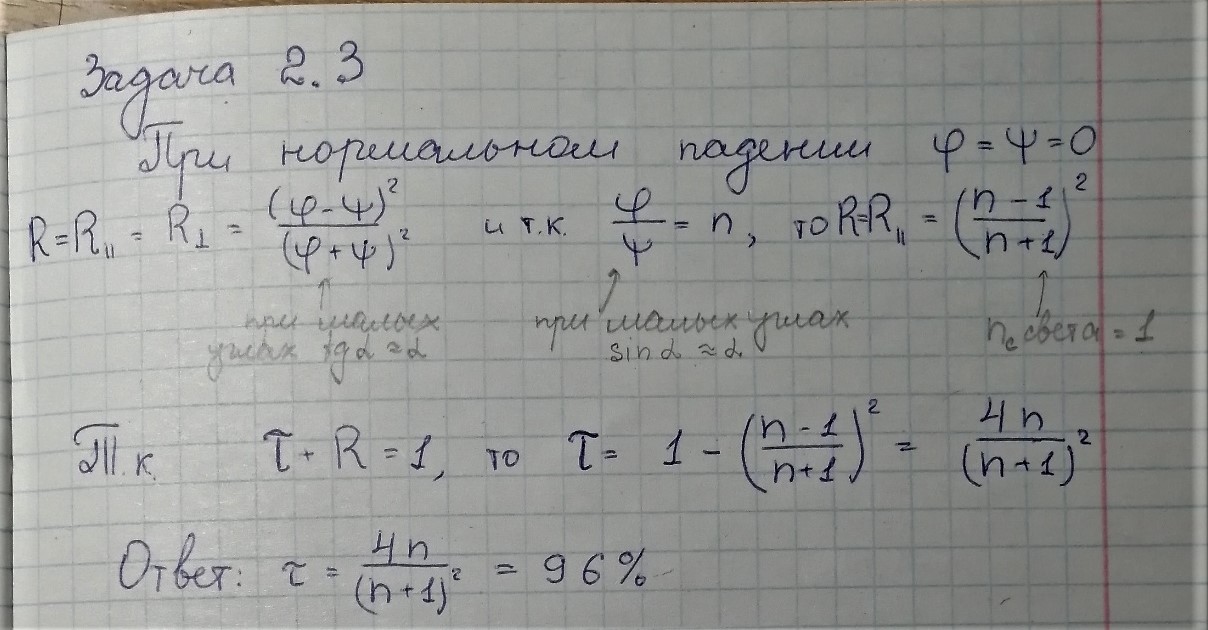 Задача 2.3
При нормальном падении φ = ψ = 0
R = R_{||} = R_⊥ = (φ - ψ)² / (φ + ψ)² и т.к. φ/ψ = n, то R = R_{||} = ((n - 1)/(n + 1))²
при малых углах tg α ≈ α при малых углах sin α ≈ α n_c света = 1
Т.к. τ + R = 1, то τ = 1 - ((n - 1)/(n + 1))² = 4n/(n + 1)²
Ответ: τ = 4n/(n + 1)² = 96%